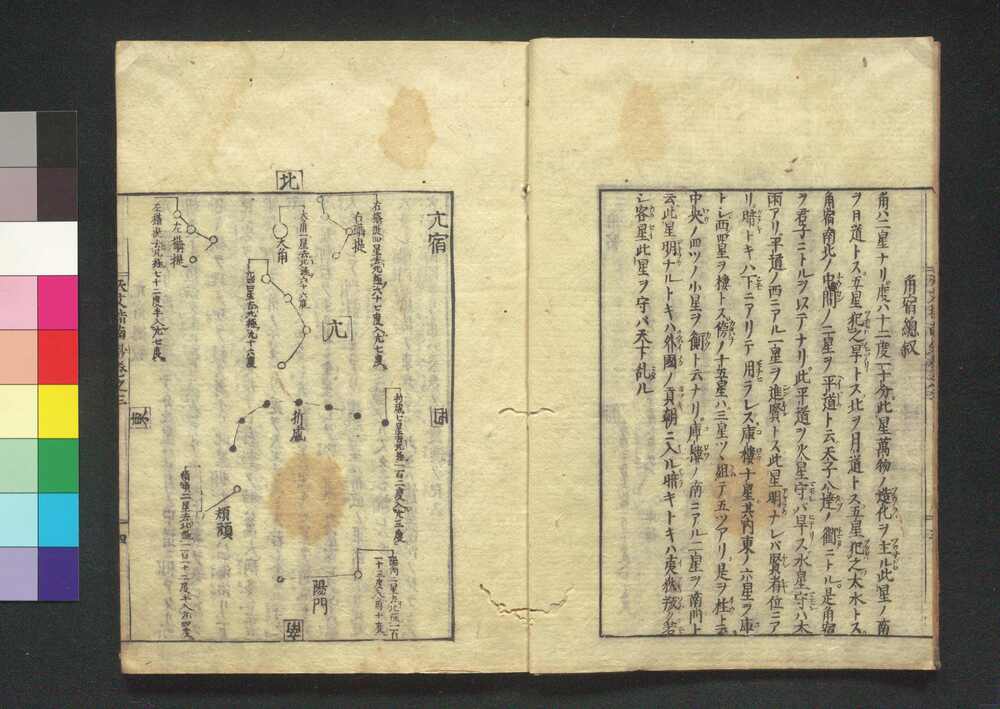 角宿總叙
角ハ二星ナリ度ハ十二度二十分此星萬物ノ造化ヲ主ル此星ノ南
ヲ日道トス五星犯之旱トス北ヲ月道トス五星犯之大水トス
角宿南北ノ中間ノ二星ヲ平道ト云天子八達ノ衢ニトル是角宿
ヲ君子ニトルヲ以テナリ此平道ヲ火星守バ旱ス水星守ハ大
雨アリ平道ノ西ニアル一星ヲ進賢トス此星明ナレバ賢者位ニア
リ暗トキハ下ニアリテ用ラレス庫樓十星其内東ノ六星ヲ庫
トシ西四星ヲ樓トス傍ノ十五星ハ三星ツヽ組テ五ツアリ是ヲ柱ト云
中央ノ四ツノ小星ヲ衡ト云ナリ庫樓ノ南ニアル二星ヲ南門ト
云此星明ナルトキハ外國ノ貢朝ニ入ル暗キトキハ夷狄
シ客星此星ヲ守バ天下乱ル
亢宿
北
右攝提
大角
大角一星去北極六十六度
左攝提
亢
亢四星去北極九十六度
折威
頏頑
陽門
東